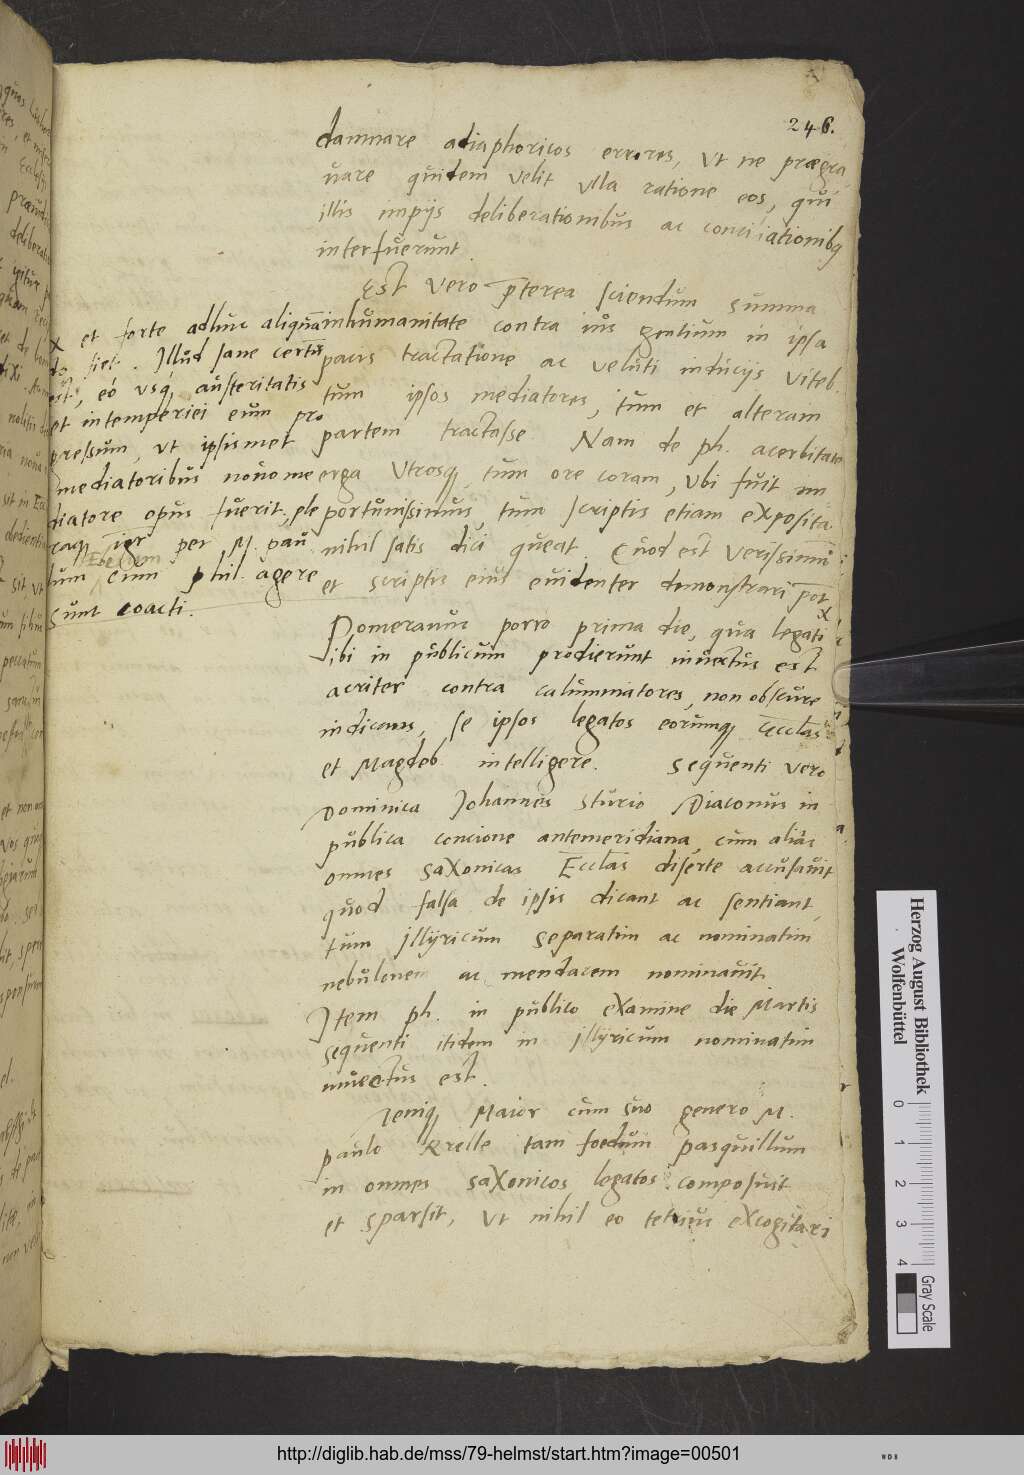 246.
damnare adiaphoricos errores, vt ne prægra
uare quidem velit vlla ratione eos, qui
illis impijs deliberationibus ac conciliationibq
interfuerunt.
Est vero pterea sciendum summa
inhumanitate contra ius gentium in ipsa
pacis tractatione ac veluti inducijs Viteb.
tum ipsos mediatores, tum et alteram
partem tractasse. Nam de ph. acerbitate
erga Vtrosq, tum ore coram, vbi fuit im
portunissimus tum scriptis etiam exposita
nihil satis dici queat. Quod est verissimũ
et scriptis eius euidenter demonstrari pot
x et forte adhuc aliquã
do fiet. Illud sane certũ
est, eò vsq, austeritatis
et intemperiei eum pro
gressum, vt ipsismet
mediatoribus nouo me
diatore opus fuerit, ple
raq igr per M. pau
lum Eberum cum phil. agere
sunt coacti.
Pomeranus porro prima die, qua legati
ibi in publicum prodierunt inuectus est
acriter contra calumniatores, non obscure
indicans, se ipsos legatos eorumq Eccl̃as
et Magdeb. intelligere. Sequenti vero
Dominica Johannes Sturio Diaconus in
publica concione antemeridiana, cum alias
omnes Saxonicas Eccl̃as diserte accusauit
quod falsa de ipsis dicant ac sentiant,
tum Illyricum separatim ac nominatim
nebulonem ac mendacem nominauit
Item ph. in publico examine die Martis
sequenti itidem in Illyricum nominatim
inuectus est.
Deniq Maior cum suo genero M.
paulo Krelle tam foedum pasquillum
in omnes Saxonicos legatos composuit
et sparsit, vt nihil eo tetrius excogitari
Herzog August Bibliothek
Wolfenbüttel
0 1 2 3 4
Gray Scale
http://diglib.hab.de/mss/79-helmst/start.htm?image=00501
WDB